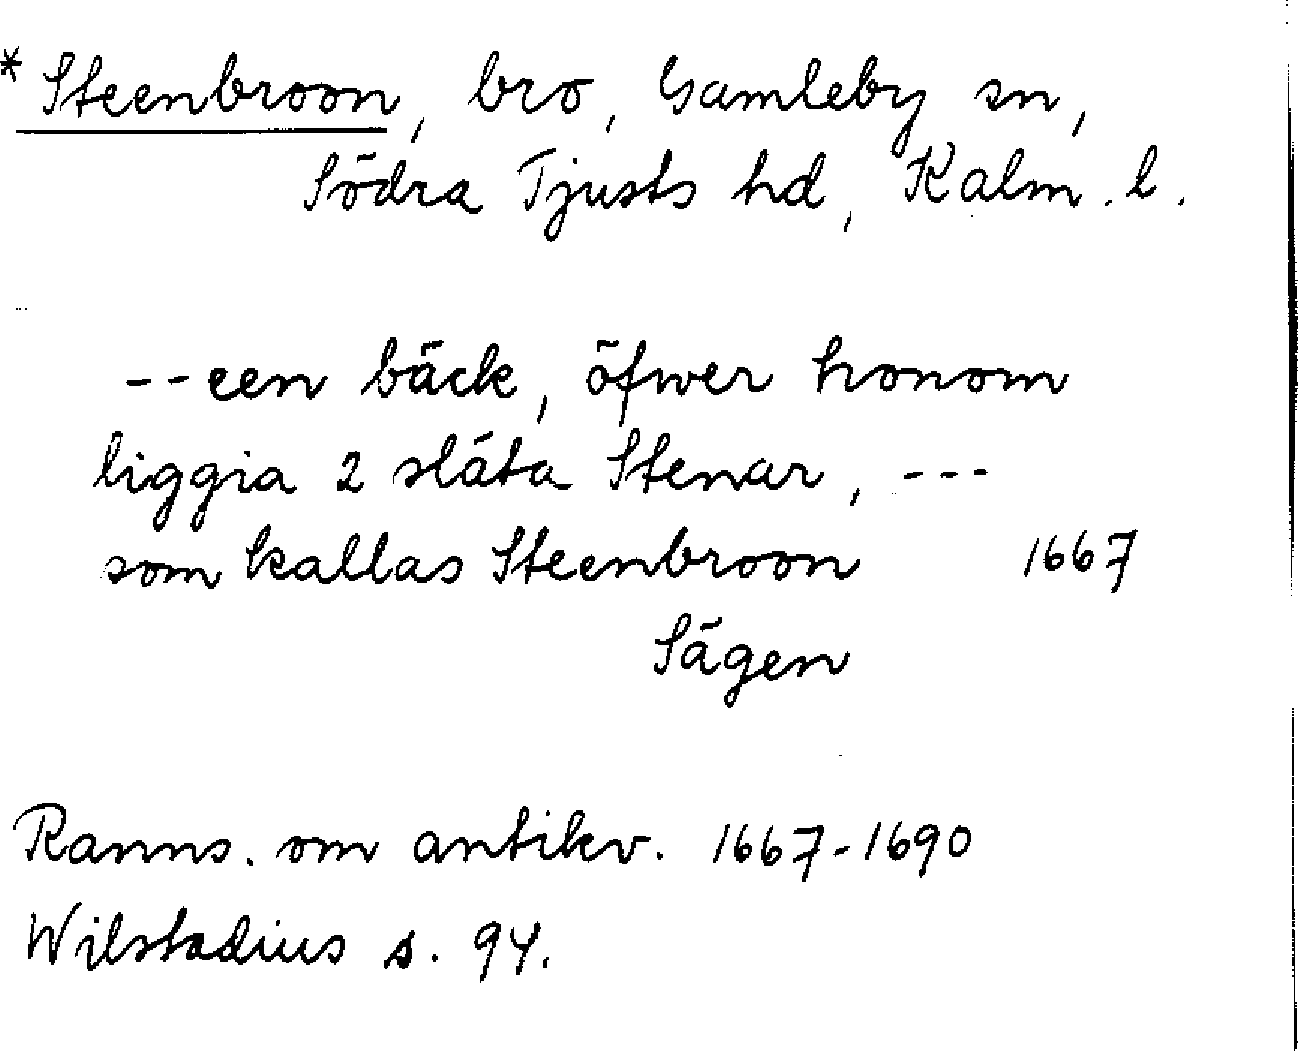 *Steenbroon, bro, Gamleby sn,
Södra Tjusts hd, Kalm. l.
--een bäck, öfwer honom
liggia 2 släta Stenar, ---
som kallas Steenbroon 1667
Sägen
Ranns. om antikv. 1667-1690
Wilstadius s. 94.